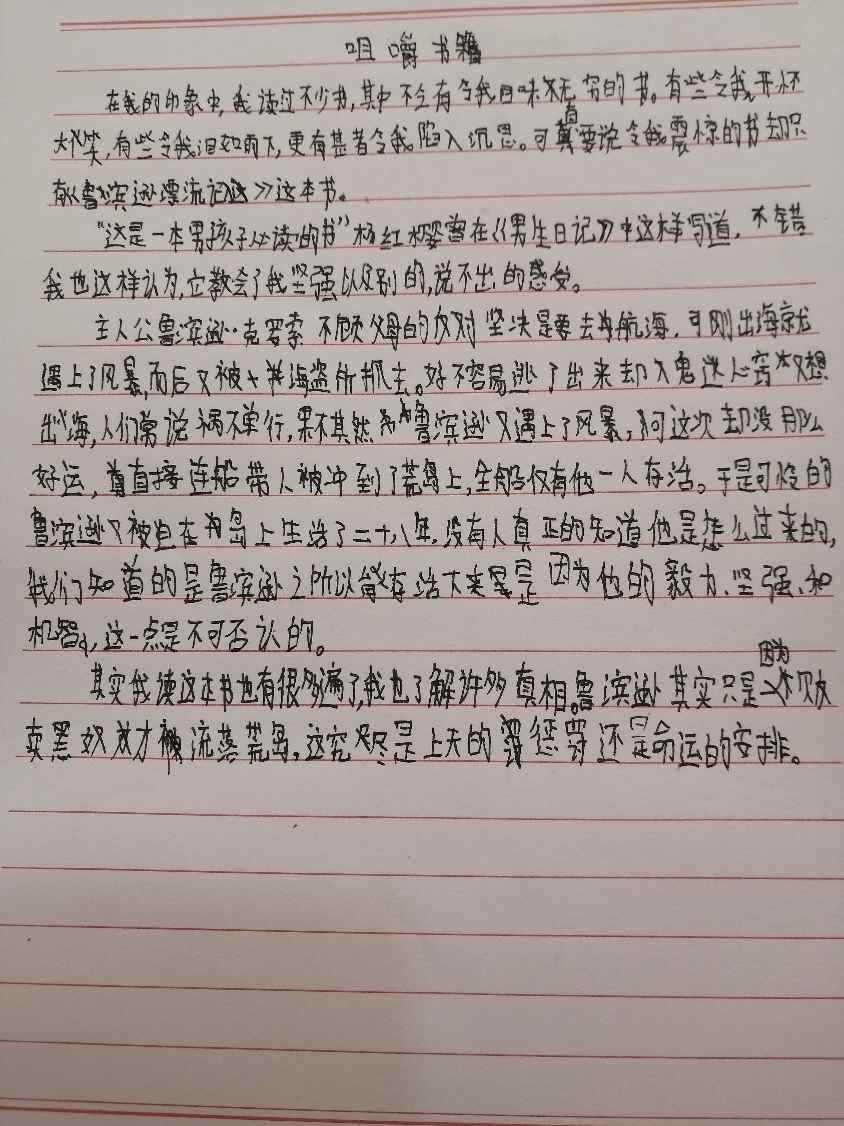 咀嚼书籍
在我的印象中,我读过不少书,其中不乏有令我回味无穷的书。有些令我开怀
大笑,有些令我泪如雨下,更有甚者令我陷入沉思。可真要说令我震惊的书却只
有《鲁滨逊漂流记》这本书。
“这是一本男孩子必读的书”杨红樱曾在《男生日记》中这样写道,不错
我也这样认为,它教会了我坚强以及别的,说不出的感受。
主人公鲁滨逊·克罗索不顾父母的反对坚决是要去航海,可刚出海就
遇上了风暴,而后又被海盗所抓去。好不容易逃了出来却又鬼迷心窍又想
出海,人们常说祸不单行,果不其然鲁滨逊又遇上了风暴,可这次却没那么
好运,直接连船带人被冲到了荒岛上,全船仅有他一人存活。于是可怜的
鲁滨逊又被迫在岛上生活了二十八年,没有人真正的知道他是怎么过来的,
我们知道的是鲁滨逊之所以能存活下来是因为他的毅力、坚强、和
机智,这一点是不可否认的。
其实我读这本书也有很多遍了,我也了解许多真相。鲁滨逊其实只是因为贩
卖黑奴才被流落荒岛,这究竟是上天的惩罚还是命运的安排。